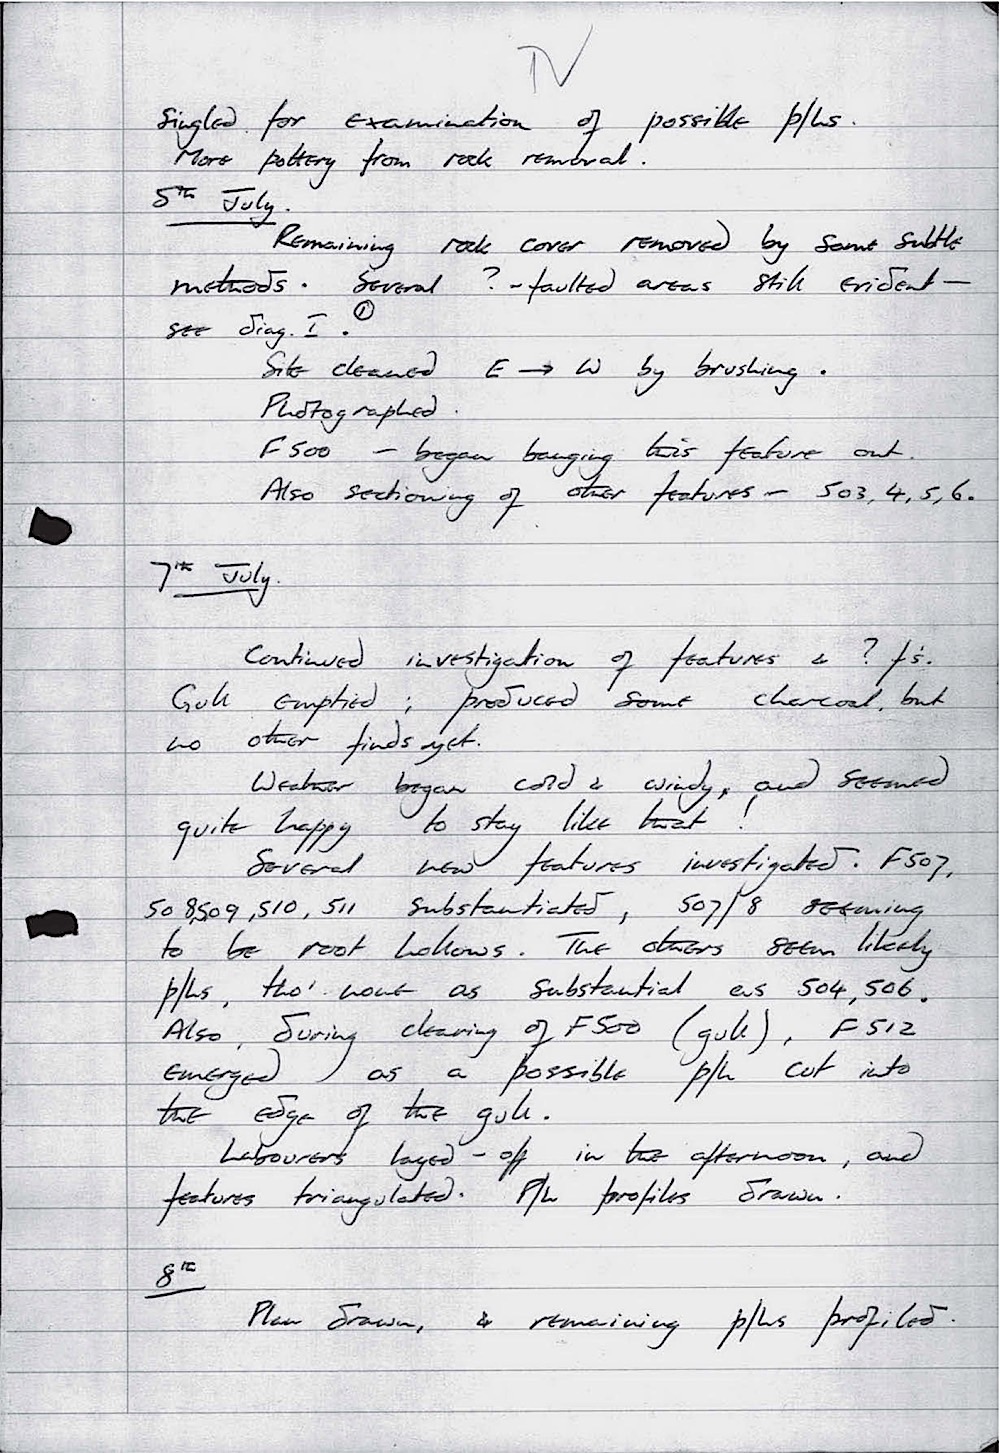 IV
Singled for examination of possible p/hs.
More pottery from rock removal.
5th July.
Remaining rock cover removed by same subtle
methods. Several ? - faulted areas still evident —
see diag. I. ①
Site cleaned E → W by brushing.
Photographed.
F500 — began banging this feature out.
Also sectioning of other features — 503, 4, 5, 6.
7th July.
Continued investigation of features & ? f's.
Gull emptied; produced some charcoal, but
no other finds yet.
Weather began cold & windy, and seemed
quite happy to stay like that!
Several new features investigated. F507,
508, 509, 510, 511 substantiated, 507/8 seeming
to be root hollows. The others seem likely
p/hs, tho' none as substantial as 504, 506.
Also, during clearing of F500 (gull), F512
emerged as a possible p/h cut into
the edge of the gull.
Labourers layed-off in the afternoon, and
features triangulated. P/h profiles drawn.
8th
Plan drawn, & remaining p/hs profiled.